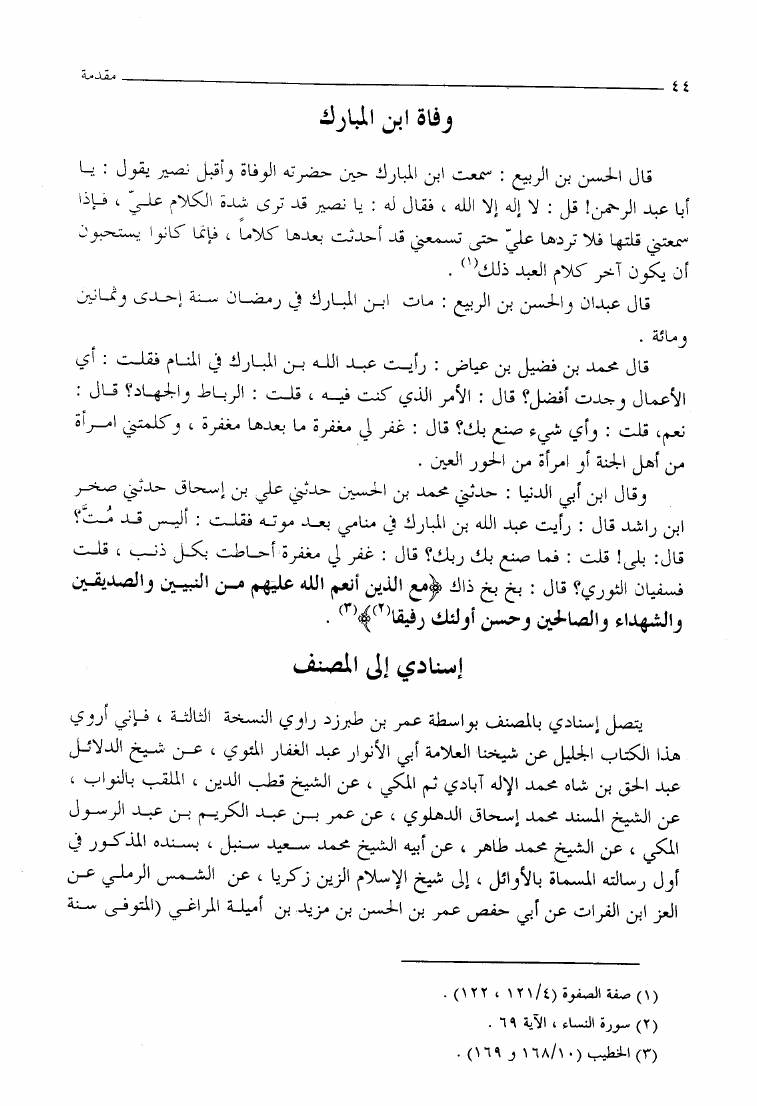 ٤٤ مقدمة
وفاة ابن المبارك
قال الحسن بن الربيع : سمعت ابن المبارك حين حضرته الوفاة وأقبل نصير يقول : يا
أبا عبد الرحمن! قل : لا إله إلا الله ، فقال له : يا نصير قد ترى شدة الكلام عليّ ، فإذا
سمعتني قلتها فلا تردها عليّ حتى تسمعني قد أحدثت بعدها كلاماً ، فإنما كانوا يستحبون
أن يكون آخر كلام العبد ذلك(١) .
قال عبدان والحسن بن الربيع : مات ابن المبارك في رمضان سنة إحدى وثمانين
ومائة .
قال محمد بن فضيل بن عياض : رأيت عبد الله بن المبارك في المنام فقلت : أي
الأعمال وجدت أفضل؟ قال : الأمر الذي كنت فيه ، قلت : الرباط والجهاد؟ قال :
نعم، قلت : وأي شيء صنع بك؟ قال : غفر لي مغفرة ما بعدها مغفرة ، وكلمتني امرأة
من أهل الجنة أو امرأة من الحور العين .
وقال ابن أبي الدنيا : حدثني محمد بن الحسين حدثني علي بن إسحاق حدثني صخر
ابن راشد قال : رأيت عبد الله بن المبارك في منامي بعد موته فقلت : أليس قد مُتَّ؟
قال: بلى! قلت : فما صنع بك ربك؟ قال : غفر لي مغفرة أحاطت بكل ذنب ، قلت
فسفيان الثوري؟ قال : بخ بخ ذاك ﴿مع الذين أنعم الله عليهم من النبيين والصديقين
والشهداء والصالحين وحسن أولئك رفيقا(٢)﴾(٣) .
إسنادي إلى المصنف
يتصل إسنادي بالمصنف بواسطة عمر بن طبرزد راوي النسخة الثالثة ، فإني أروي
هذا الكتاب الجليل عن شيخنا العلامة أبي الأنوار عبد الغفار المئوي ، عن شيخ الدلائل
عبد الحق بن شاه محمد الإله آبادي ثم المكي ، عن الشيخ قطب الدين ، الملقب بالنواب ،
عن الشيخ المسند محمد إسحاق الدهلوي ، عن عمر بن عبد الكريم بن عبد الرسول
المكي ، عن الشيخ محمد طاهر ، عن أبيه الشيخ محمد سعيد سنبل ، بسنده المذكور في
أول رسالته المسماة بالأوائل ، إلى شيخ الإسلام الزين زكريا ، عن الشمس الرملي عن
العز ابن الفرات عن أبي حفص عمر بن الحسن بن مزيد بن أميلة المراغي (المتوفى سنة
(١) صفة الصفوة (١٢١/٤ ، ١٢٢) .
(٢) سورة النساء ، الآية ٦٩ .
(٣) الخطيب (١٦٨/١٠ و ١٦٩) .